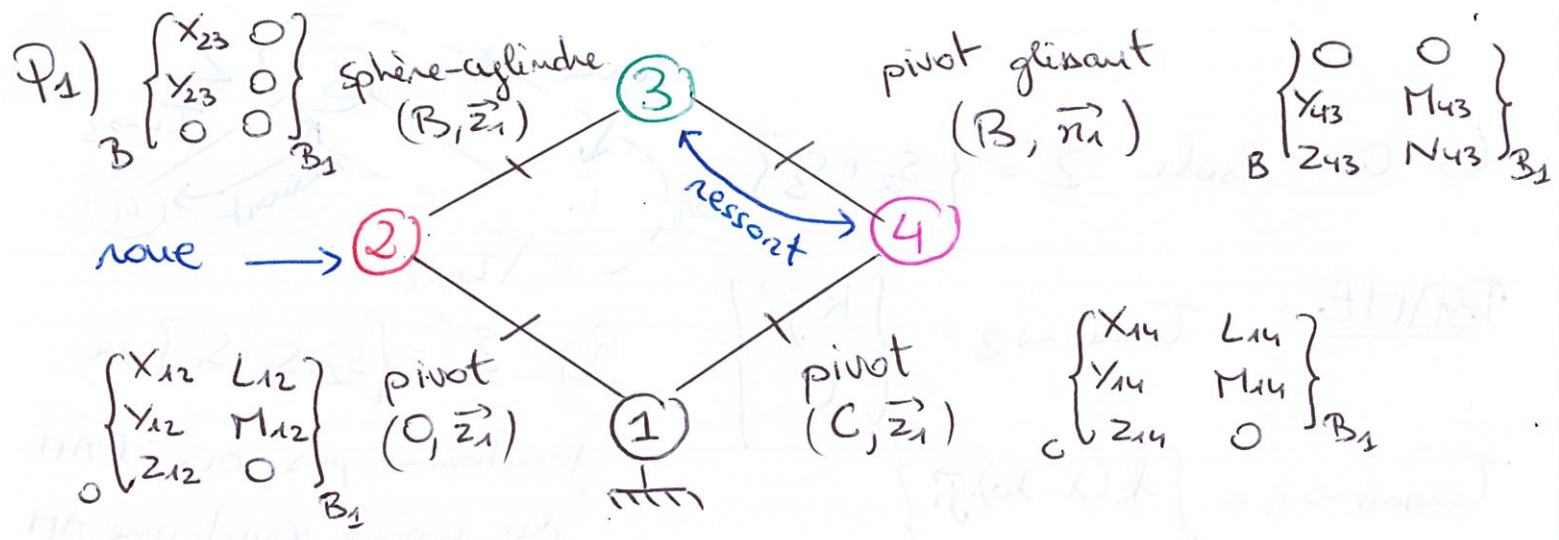 Q1)
{X23 0
Y23 0
0 0}
B B1
sphère-cylindre
(B, z1)
3
pivot glissant
(B, x1)
{0 0
Y43 M43
Z43 N43}
B B1
ressort
roue
2
4
{X12 L12
Y12 M12
Z12 0}
O B1
pivot
(O, z1)
1
pivot
(C, z1)
{X14 L14
Y14 M14
Z14 0}
C B1